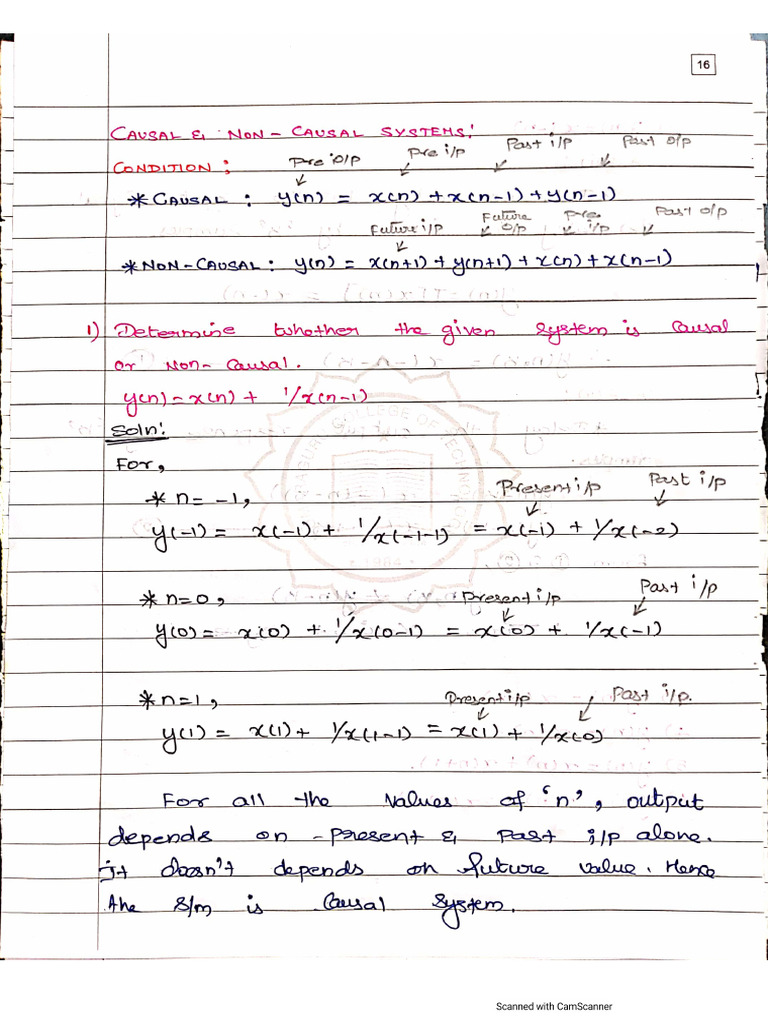 16
CAUSAL & NON-CAUSAL SYSTEMS:
CONDITION: Pre O/P Pre i/p Past i/p Past O/p
* CAUSAL : y(n) = x(n) + x(n-1) + y(n-1)
Future i/p Future O/p Pre. i/p Past O/p
* NON-CAUSAL: y(n) = x(n+1) + y(n+1) + x(n) + x(n-1)
1) Determine whether the given system is causal
or Non-Causal.
y(n) = x(n) + 1/x(n-1)
Soln:
For,
* n = -1, Present i/p Past i/p
y(-1) = x(-1) + 1/x(-1-1) = x(-1) + 1/x(-2)
* n=0, Present i/p Past i/p
y(0) = x(0) + 1/x(0-1) = x(0) + 1/x(-1)
* n=1, Present i/p Past i/p.
y(1) = x(1) + 1/x(1-1) = x(1) + 1/x(0)
For all the values of 'n', output
depends on present & past i/p alone.
it doesn't depends on future value. Hence
the S/m is Causal System.
Scanned with CamScanner